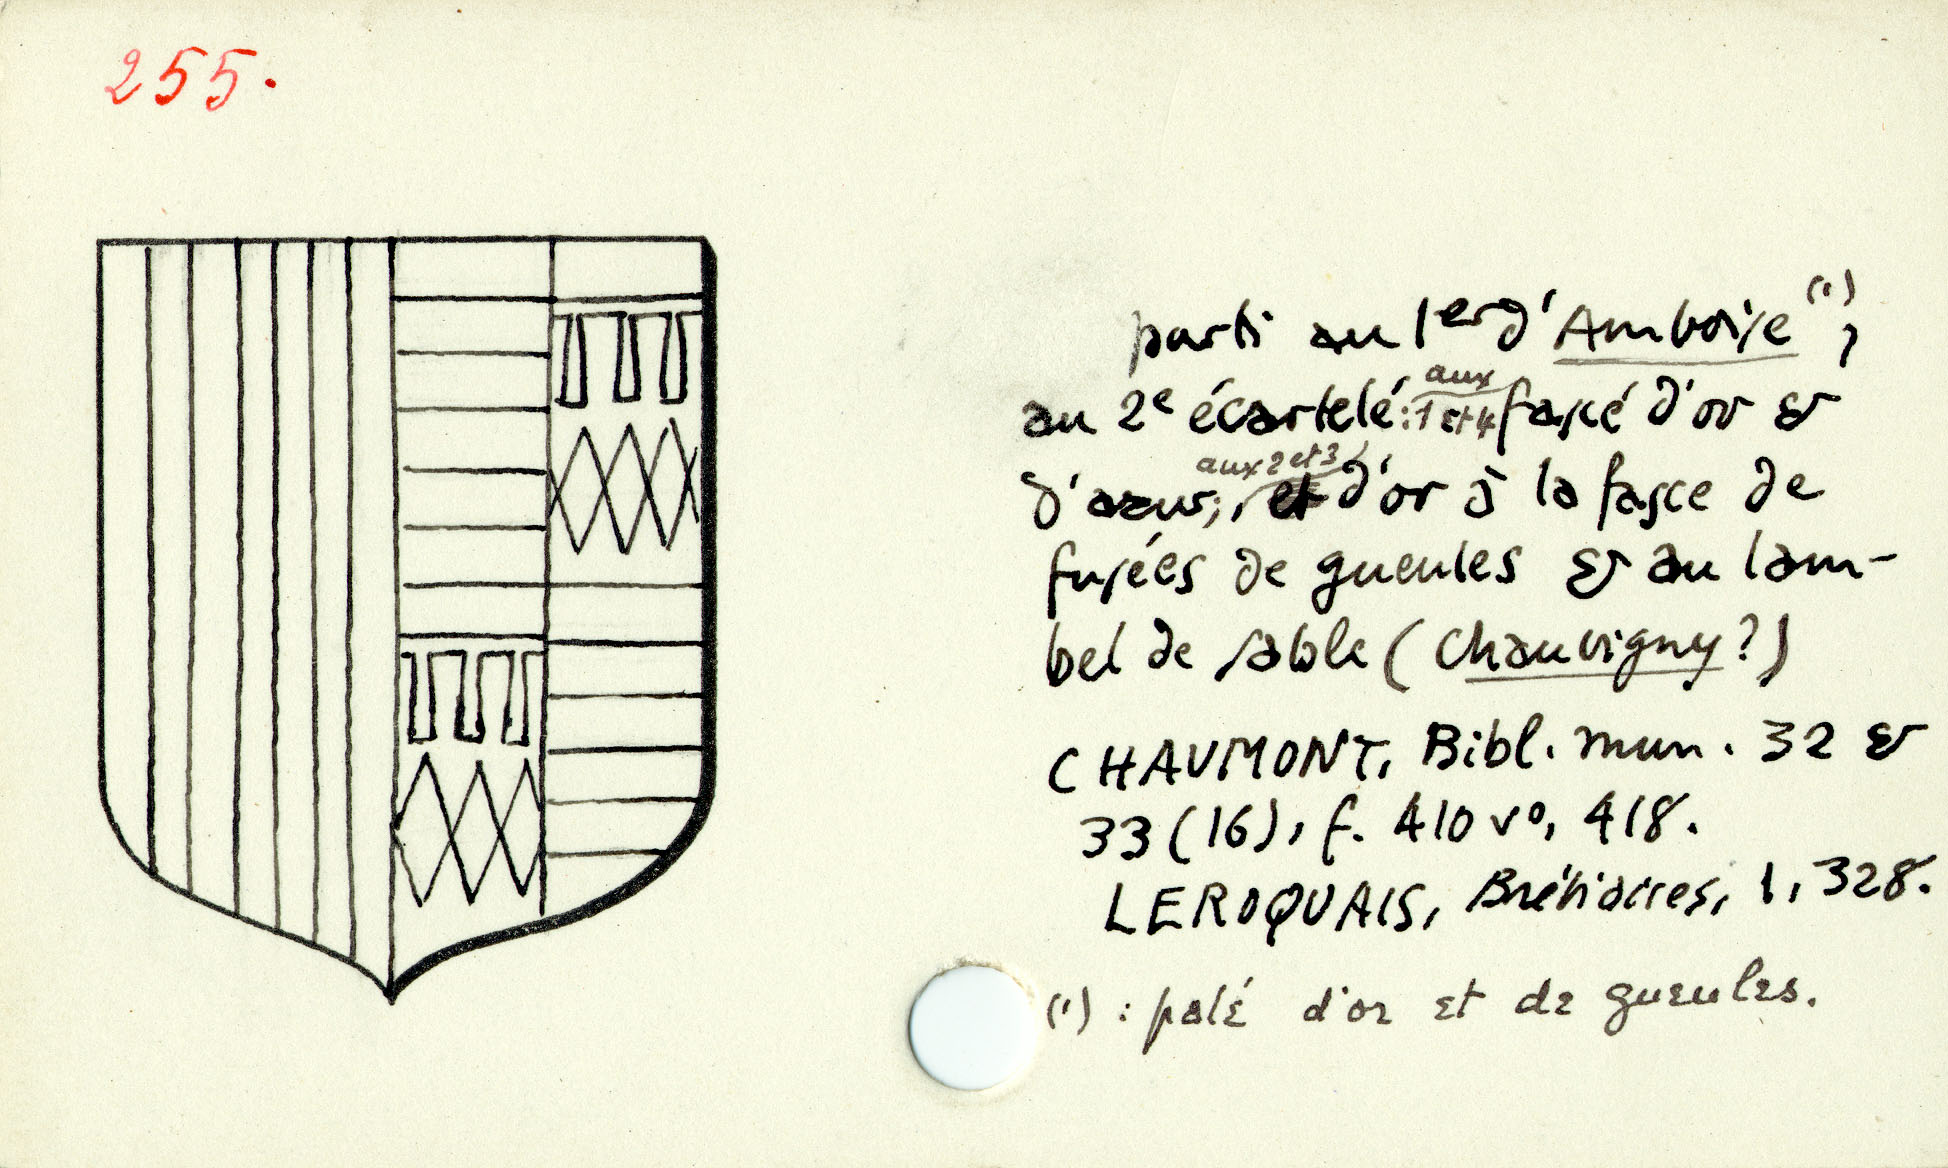 255.
parti au 1er d'Amboise (1),
au 2e écartelé : aux 1 et 4 fascé d'or &
d'azur; aux 2 et 3 d'or à la fasce de
fusées de gueules & au lam-
bel de sable (Chauvigny ?)
CHAUMONT, Bibl. mun. 32 &
33 (16), f. 410 vo, 418.
LEROQUAIS, Bréviaires, 1, 328.
(1) : palé d'or et de gueules.